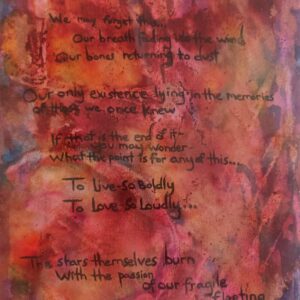 We may forget this...
Our breath fading like the wind
Our bones returning to dust
Our only existence lying in the memories
of those we once knew
If that is the end of it~
you may wonder
What the point is for any of this...
To Live so Boldly
To Love so Loudly...
The stars themselves burn
With the passion
of our fragile
floating